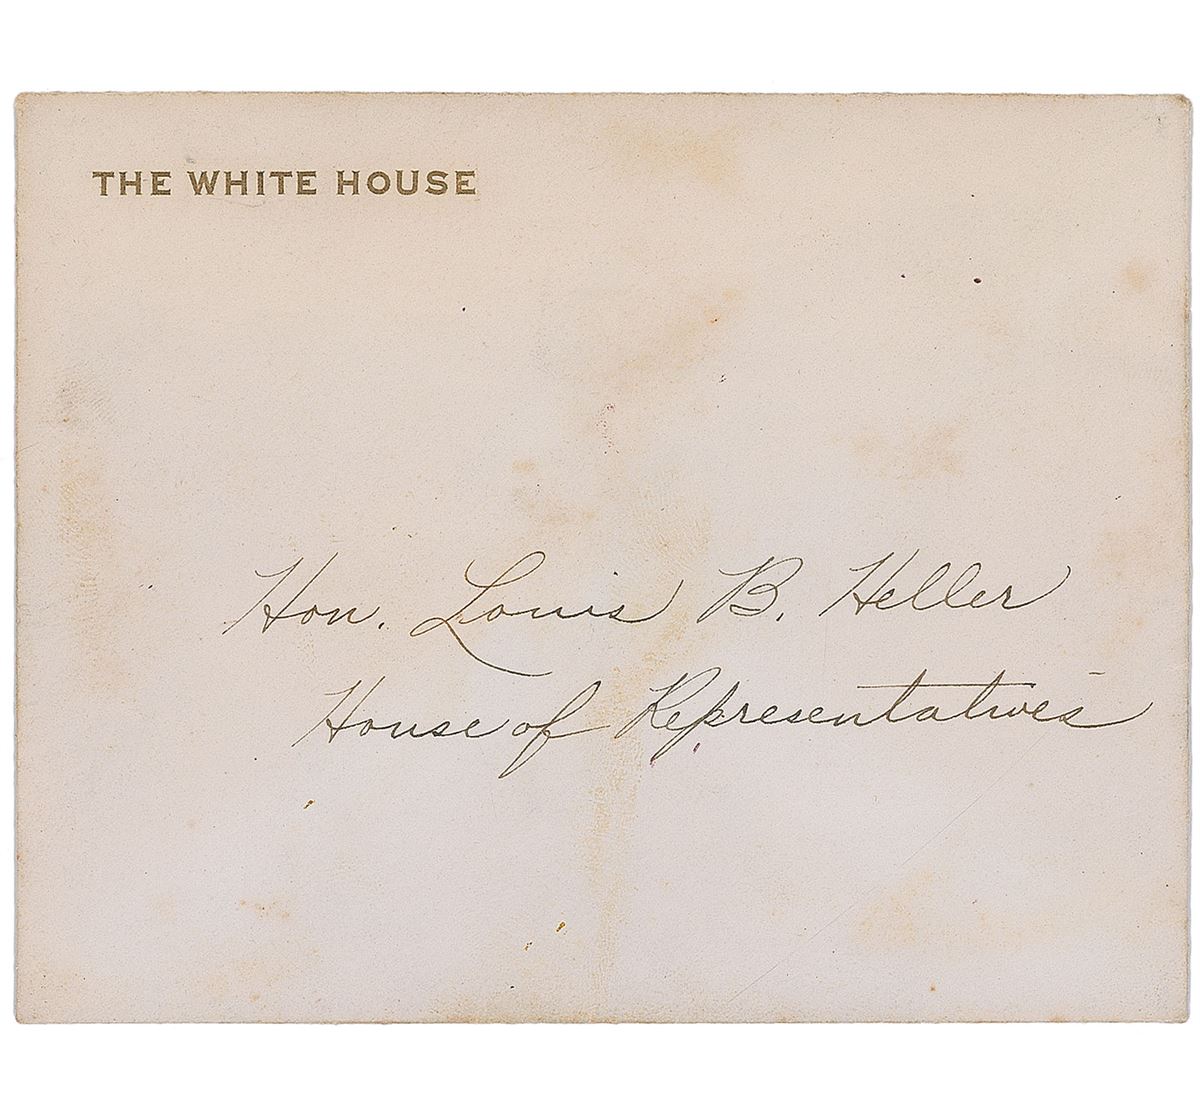 THE WHITE HOUSE
Hon. Louis B. Heller
House of Representatives